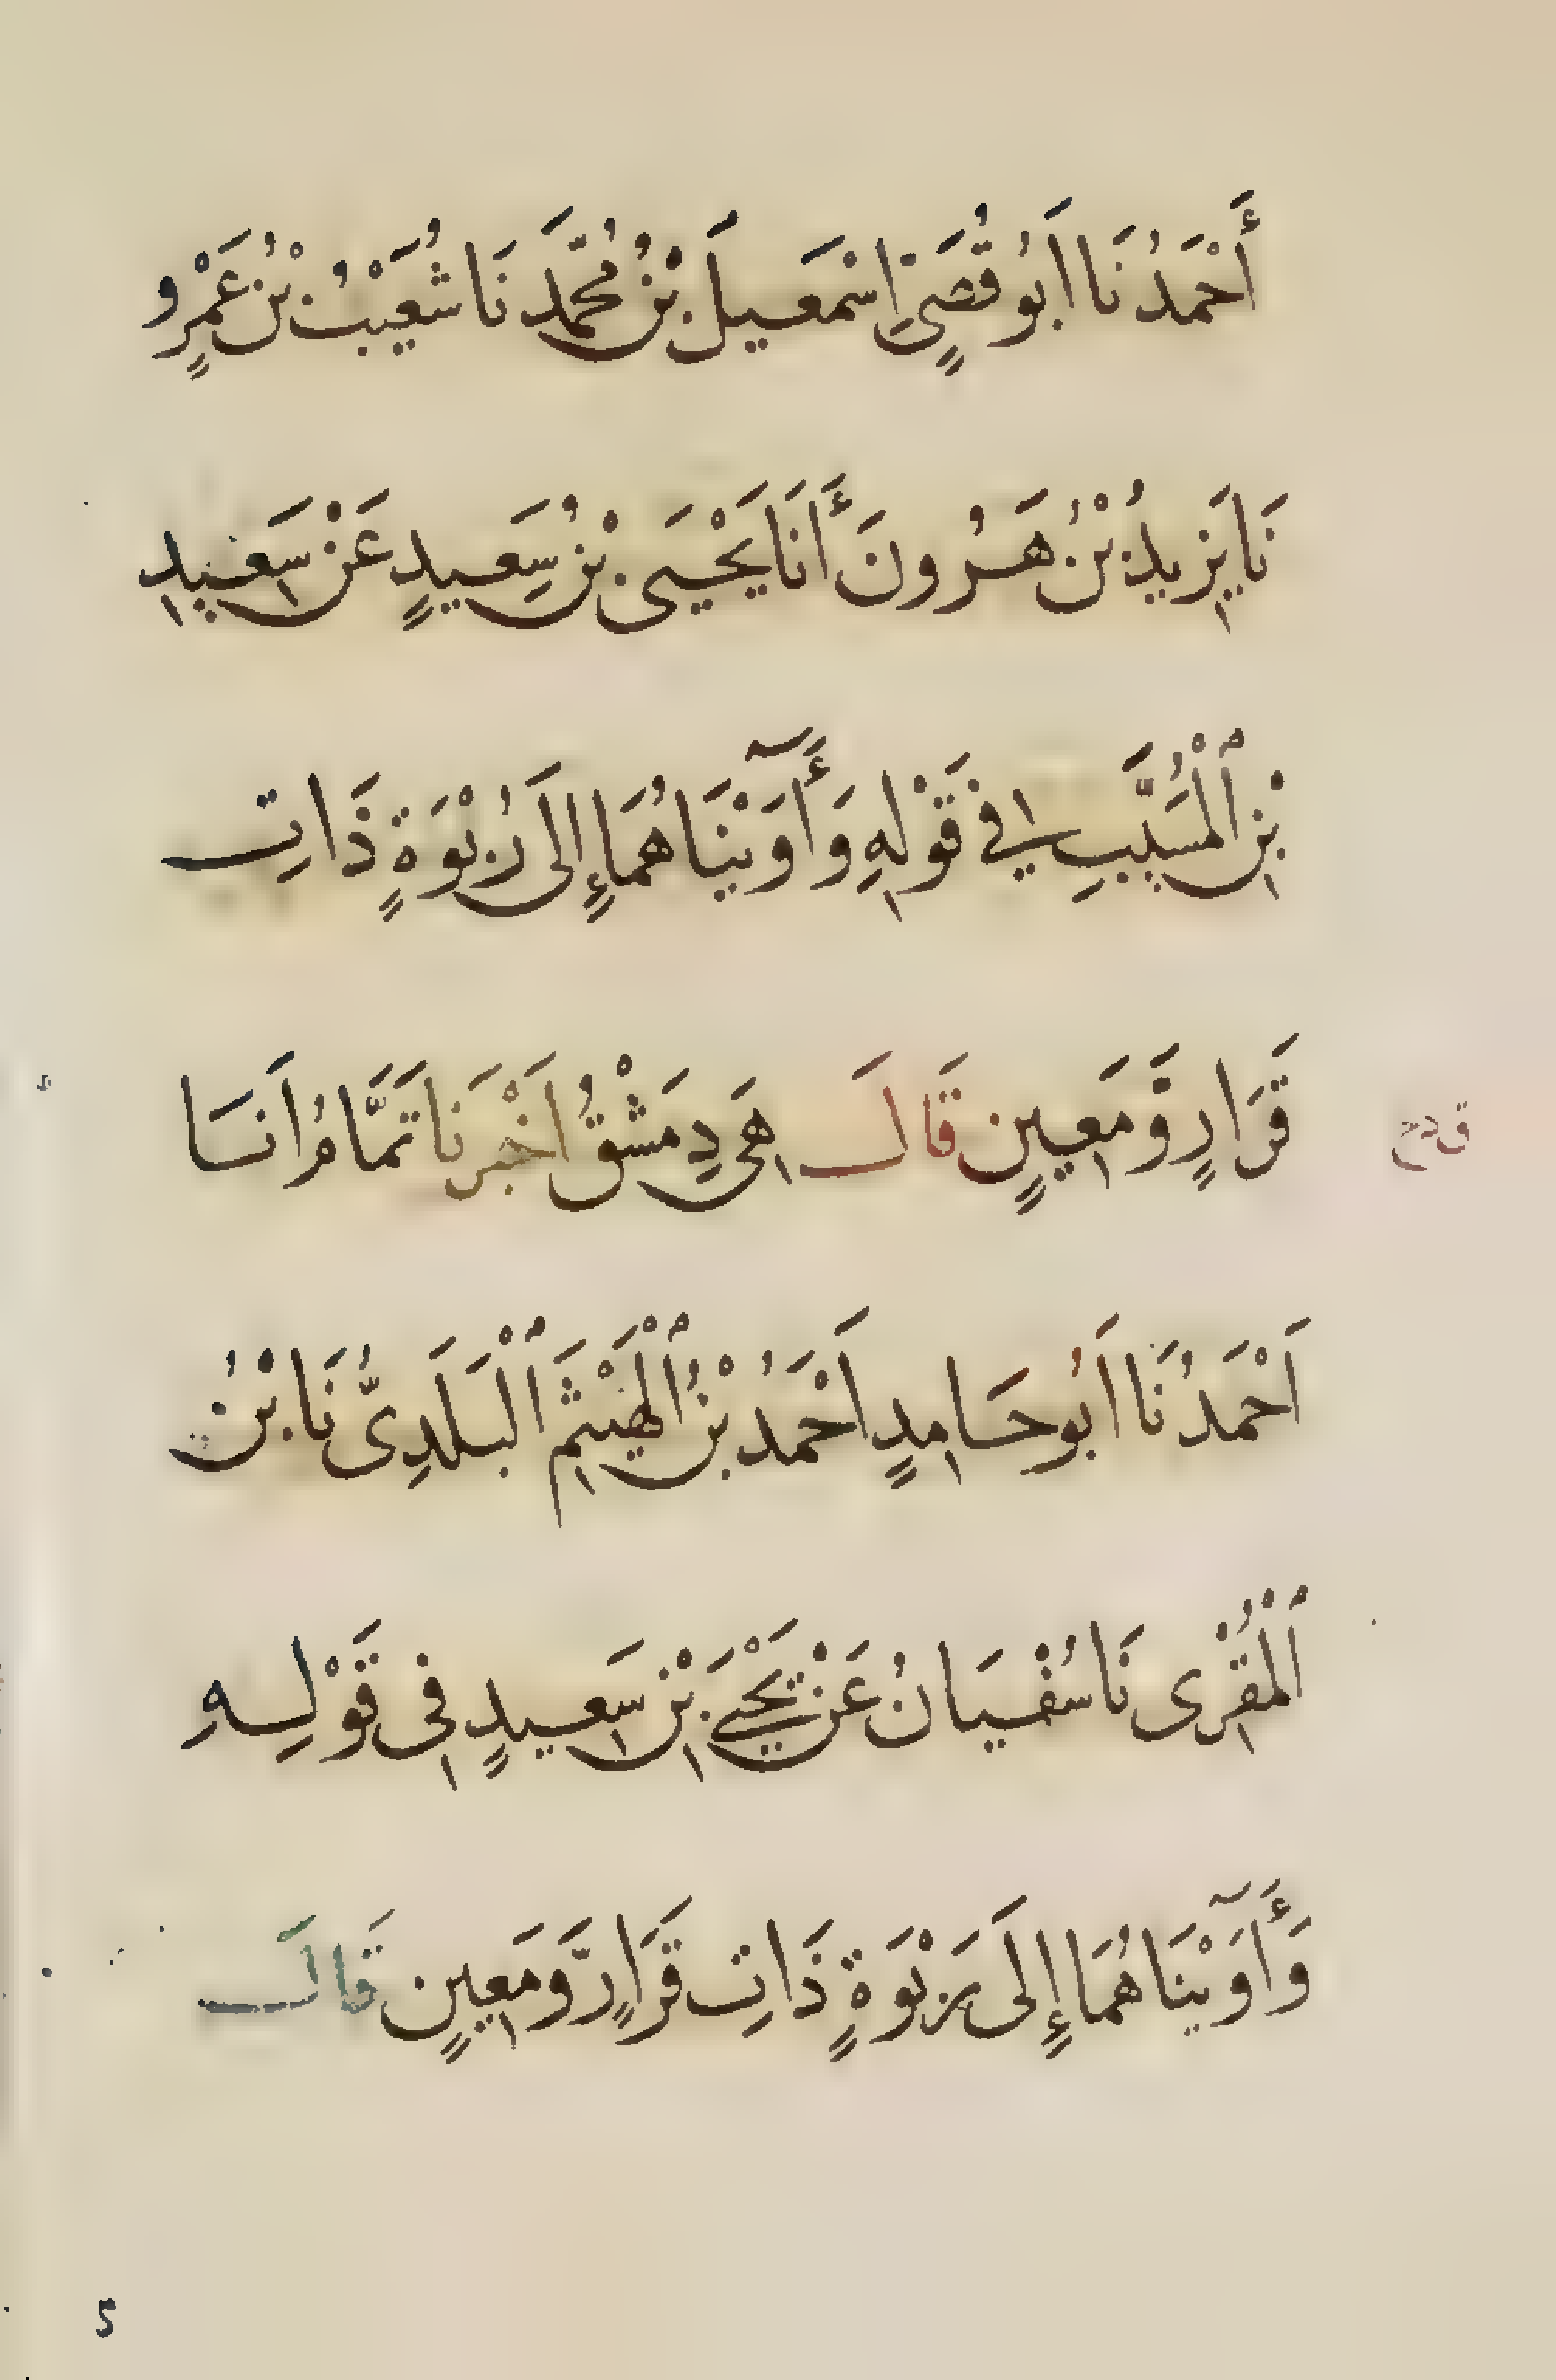 أَحْمَدُ نَا اَبُو قُصَيٍّ اِسْمَعِيلَ بْنُ مُحَمَّدَ نَا شُعَيْبُ بْنُ عَمْرٍو
نَا يَزِيدُ بْنُ هَرُونَ أَنَا يَحْيَى بْنُ سَعِيدٍ عَنْ سَعِيدِ
بْنِ ٱلْمُسَيَّبِ فِي قَوْلِهِ وَأَوَيْنَاهُمَا إِلَى رُبْوَةٍ ذَاتِ
قَرَارٍ وَّمَعِينٍ قَالَ هِيَ دِمَشْقُ اَخْبَرَنَا تَمَّامُ اَنَسَا
اَحْمَدُ نَا اَبُو حَامِدٍ اَحْمَدُ بْنُ ٱلْهَيْثَمِ ٱلْبَلَدِىُّ نَا بْنُ
ٱلْمُقْرِى نَا سُفْيَانُ عَنْ يَحْيَى بْنِ سَعِيدٍ فِى قَوْلِهِ
وَأَوَيْنَاهُمَا إِلَى رَبْوَةٍ ذَاتِ قَرَارٍ وَّمَعِينٍ قَالَ
5